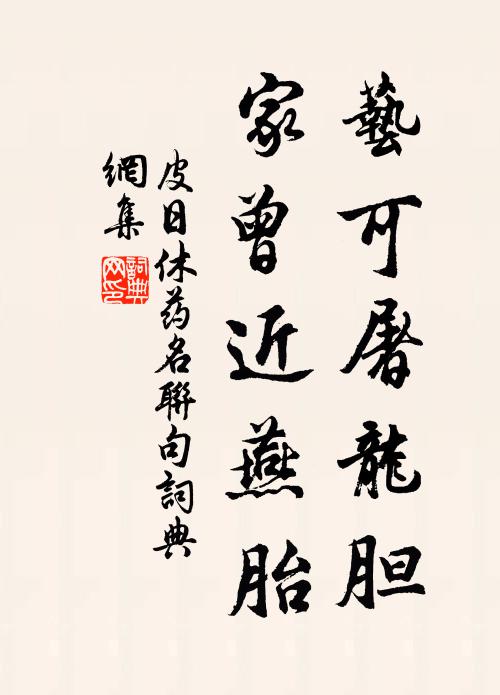 藝可屠龍胆
家曾近燕胎
皮日休药名聯句詞典
網集
詞典
网印